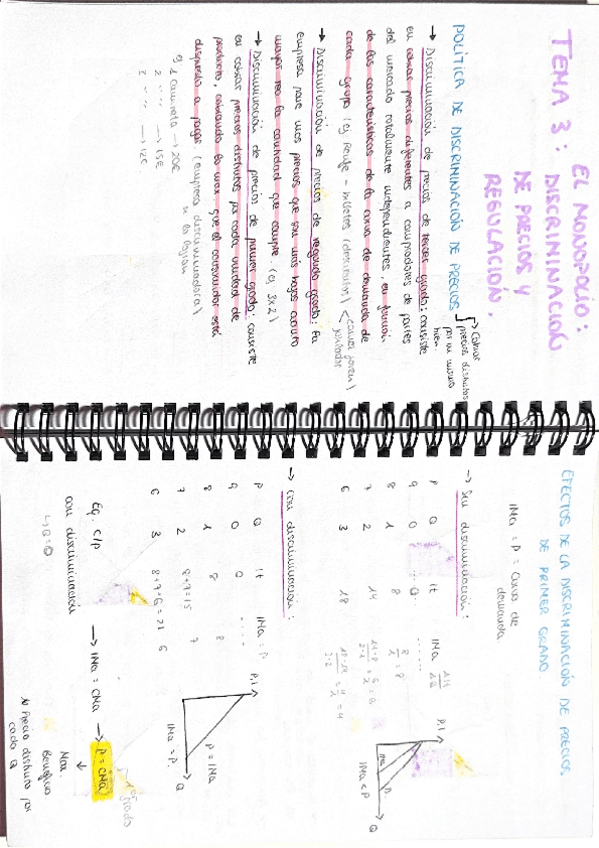 TEMA 3: EL MONOPOLIO:
DISCRIMINACIÓN
DE PRECIOS Y
REGULACIÓN.
POLÍTICA DE DISCRIMINACIÓN DE PRECIOS
→ Cobrar
precios distintos
por un mismo
bien.
→ Discriminación de precios de tercer grado: consiste
en cobrar precios diferentes a compradores de partes
del mercado totalmente independientes, en función
de las características de la curva de demanda de
cada grupo (ej Renfe - billetes (descuentos)
carnet joven)
jubilados
→ Discriminación de precios de segundo grado: la
empresa pone unos precios que son más bajos cuanto
mayor sea la cantidad que compre. (ej 3x2)
→ Discriminación de precios de primer grado: consiste
en cobrar precios distintos por cada unidad de
producto, cobrando lo max que el consumidor está
dispuesto a pagar (empresa discriminadora)
ej 1 camiseta → 20€
2 " " → 15€
3 " " → 12€
EFECTOS DE LA DISCRIMINACIÓN DE PRECIOS
DE PRIMER GRADO
IMa = P = Curva de
demanda
→ Sin discriminación:
P Q It IMa ΔIt/ΔQ
9 0 0 ....
8 1 8 8/1 = 8
7 2 14 14-8/2-1 = 6
6 3 18 18-14/3-2 = 4/1 = 4
P, I
IMa
D
Q
IMa < P
→ Con discriminación:
P Q It IMa = P
9 0 0 .....
8 1 8 8
7 2 8+7=15 7
6 3 8+7+6=21 6
P, I
P = IMa
Q
IMa = P
Eq. c/p
con discriminación → IMa = CMa → P = CMa
1er grado
Max
Beneficio
precio distinto por
cada Q